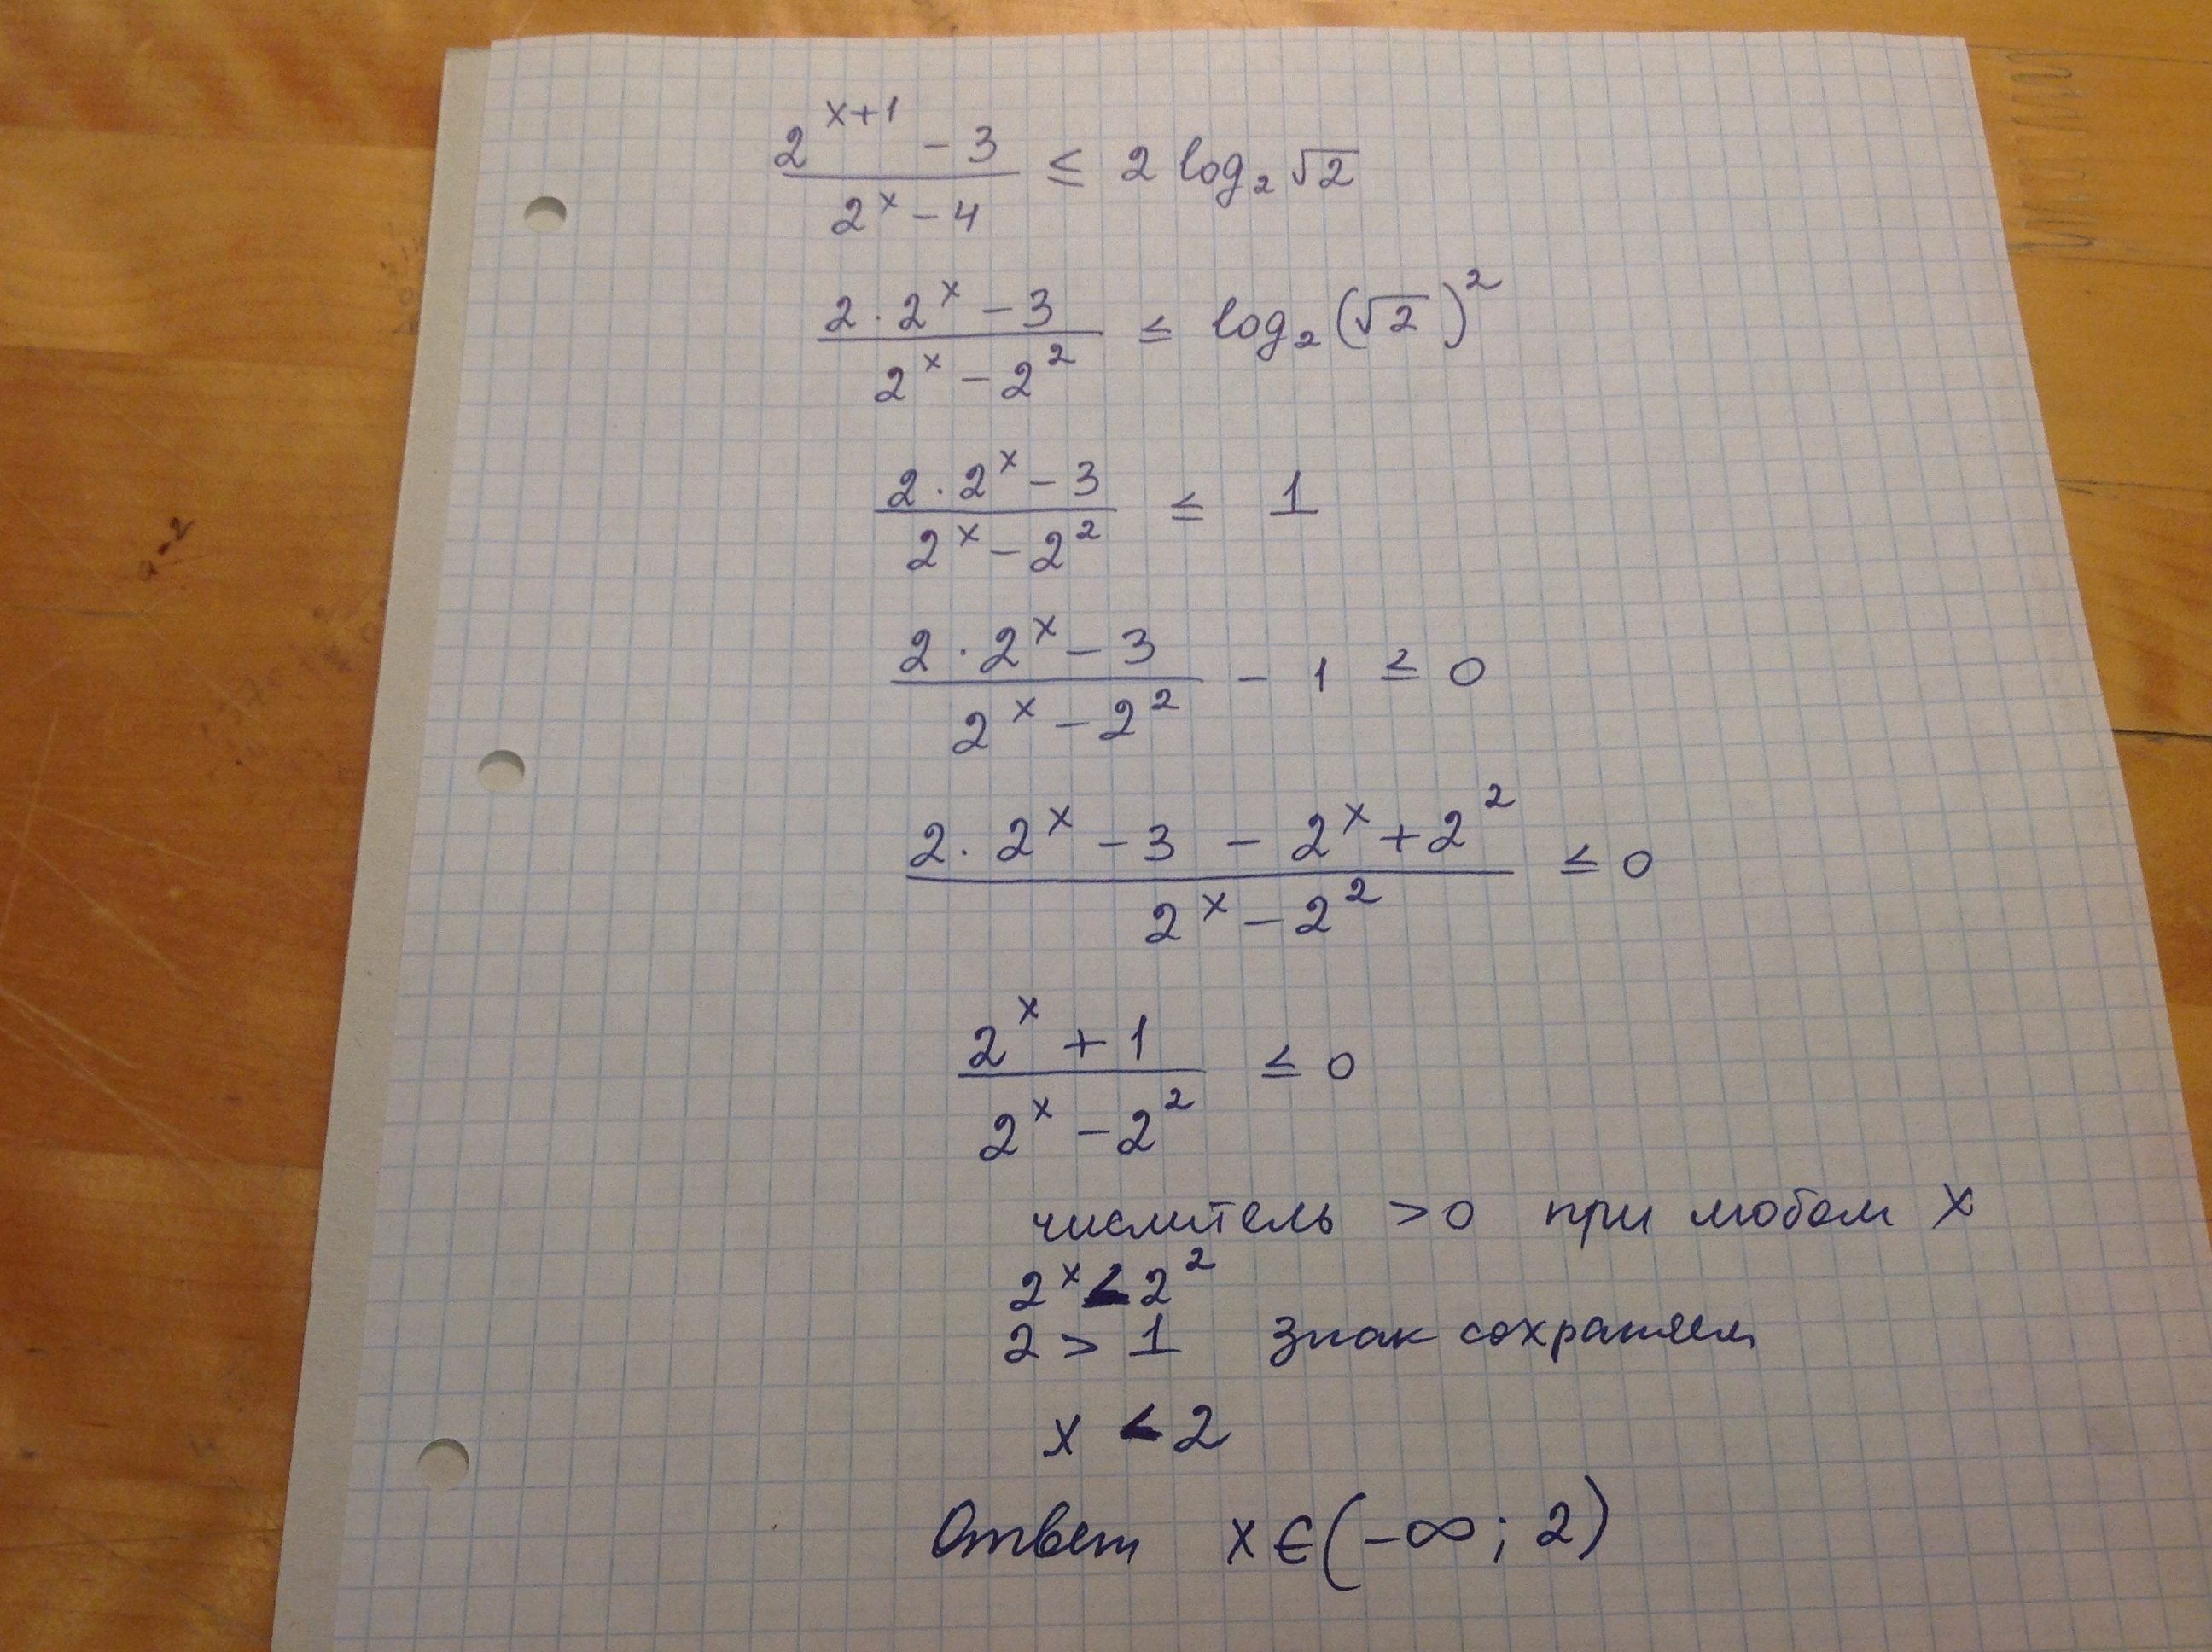 2^(x+1) - 3 / 2^x - 4 ≤ 2 log₂ √2
2 · 2^x - 3 / 2^x - 2^2 ≤ log₂ (√2)^2
2 · 2^x - 3 / 2^x - 2^2 ≤ 1
2 · 2^x - 3 / 2^x - 2^2 - 1 ≤ 0
2 · 2^x - 3 - 2^x + 2^2 / 2^x - 2^2 ≤ 0
2^x + 1 / 2^x - 2^2 ≤ 0
числитель > 0 при любом x
2^x < 2^2
2 > 1 знак сохраняем
x < 2
Ответ x ∈ (-∞; 2)